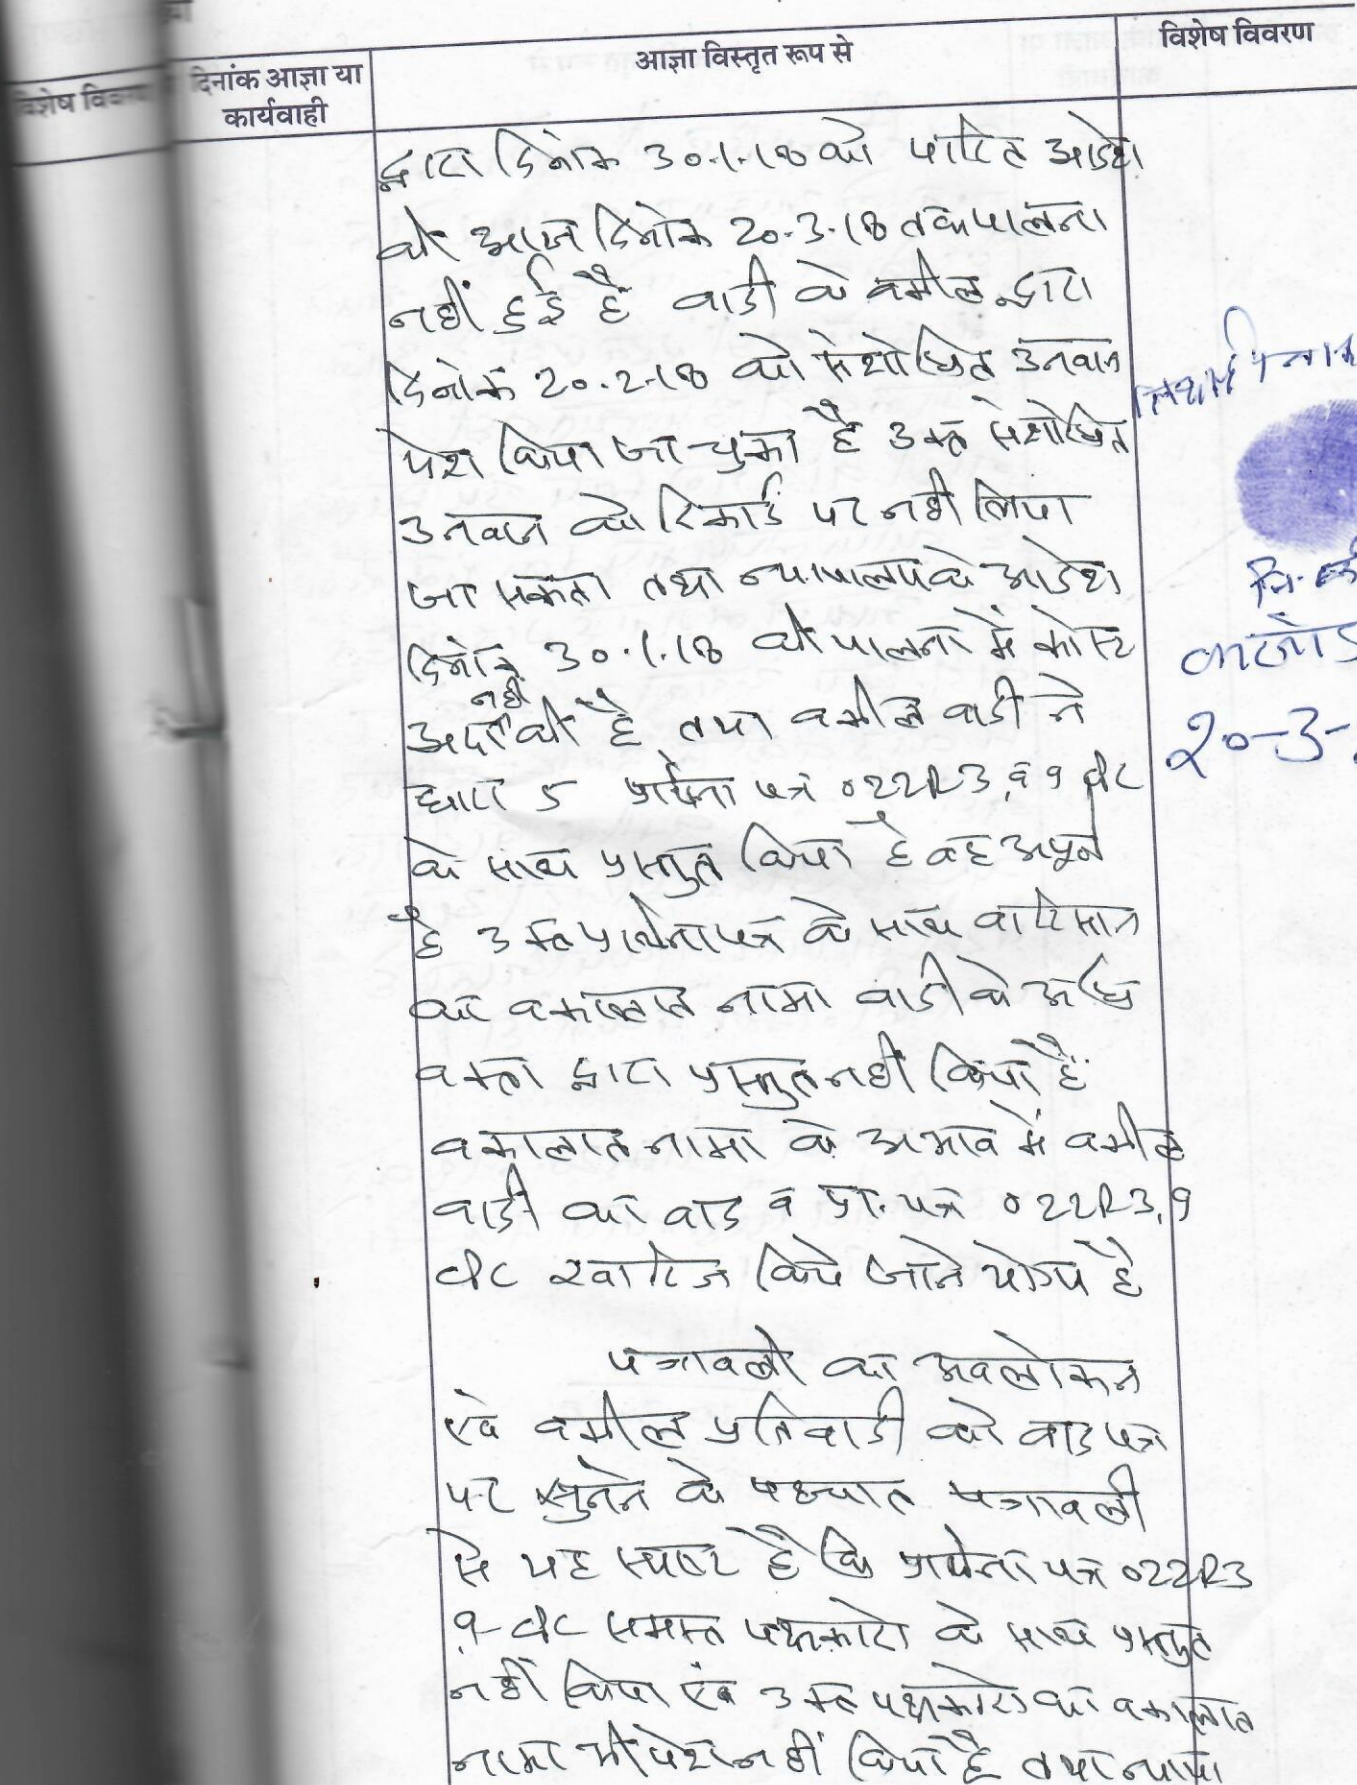 विशेष विवरण
दिनांक आज्ञा या
कार्यवाही
आज्ञा विस्तृत रूप से
विशेष विवरण
द्वारा दिनांक 30.1.18 को पारित आदेश
की आज दिनांक 20.3.18 तक पालना
नहीं हुई है वादी के वकील द्वारा
दिनांक 20.2.18 को संशोधित उनवान
पेश किया जा चुका है उक्त संशोधित
उनवान को रिकार्ड पर नही लिया
जा सकता तथा न्यायालय के आदेश
दिनांक 30.1.18 की पालना में कोस्ट
नहीं
अदा की है तथा वकील वादी ने
धारा 5 प्रार्थना पत्र 022R3, व 9 CPC
के साथ प्रस्तुत किया है वह अपूर्ण
है उक्त प्रार्थनापत्र के साथ वारिसान
का वकालात नामा वादी के अधि
वक्ता द्वारा प्रस्तुत नहीं किया है
वकालात नामा के अभाव में वकील
वादी का वाद व प्रा. पत्र 022R3,9
CPC खारिज किये जाने योग्य है
पत्रावली का अवलोकन
एवं वकील प्रतिवादी को वाद पत्र
पर सुनने के पश्चात पत्रावली
से यह स्पष्ट है कि प्रार्थना पत्र 022R3
9 CPC समस्त पक्षकारो के साथ प्रस्तुत
नहीं किया एवं उक्त पक्षकारो का वकालात
नामा भी पेश नहीं किया है तथा न्याया
20-3-